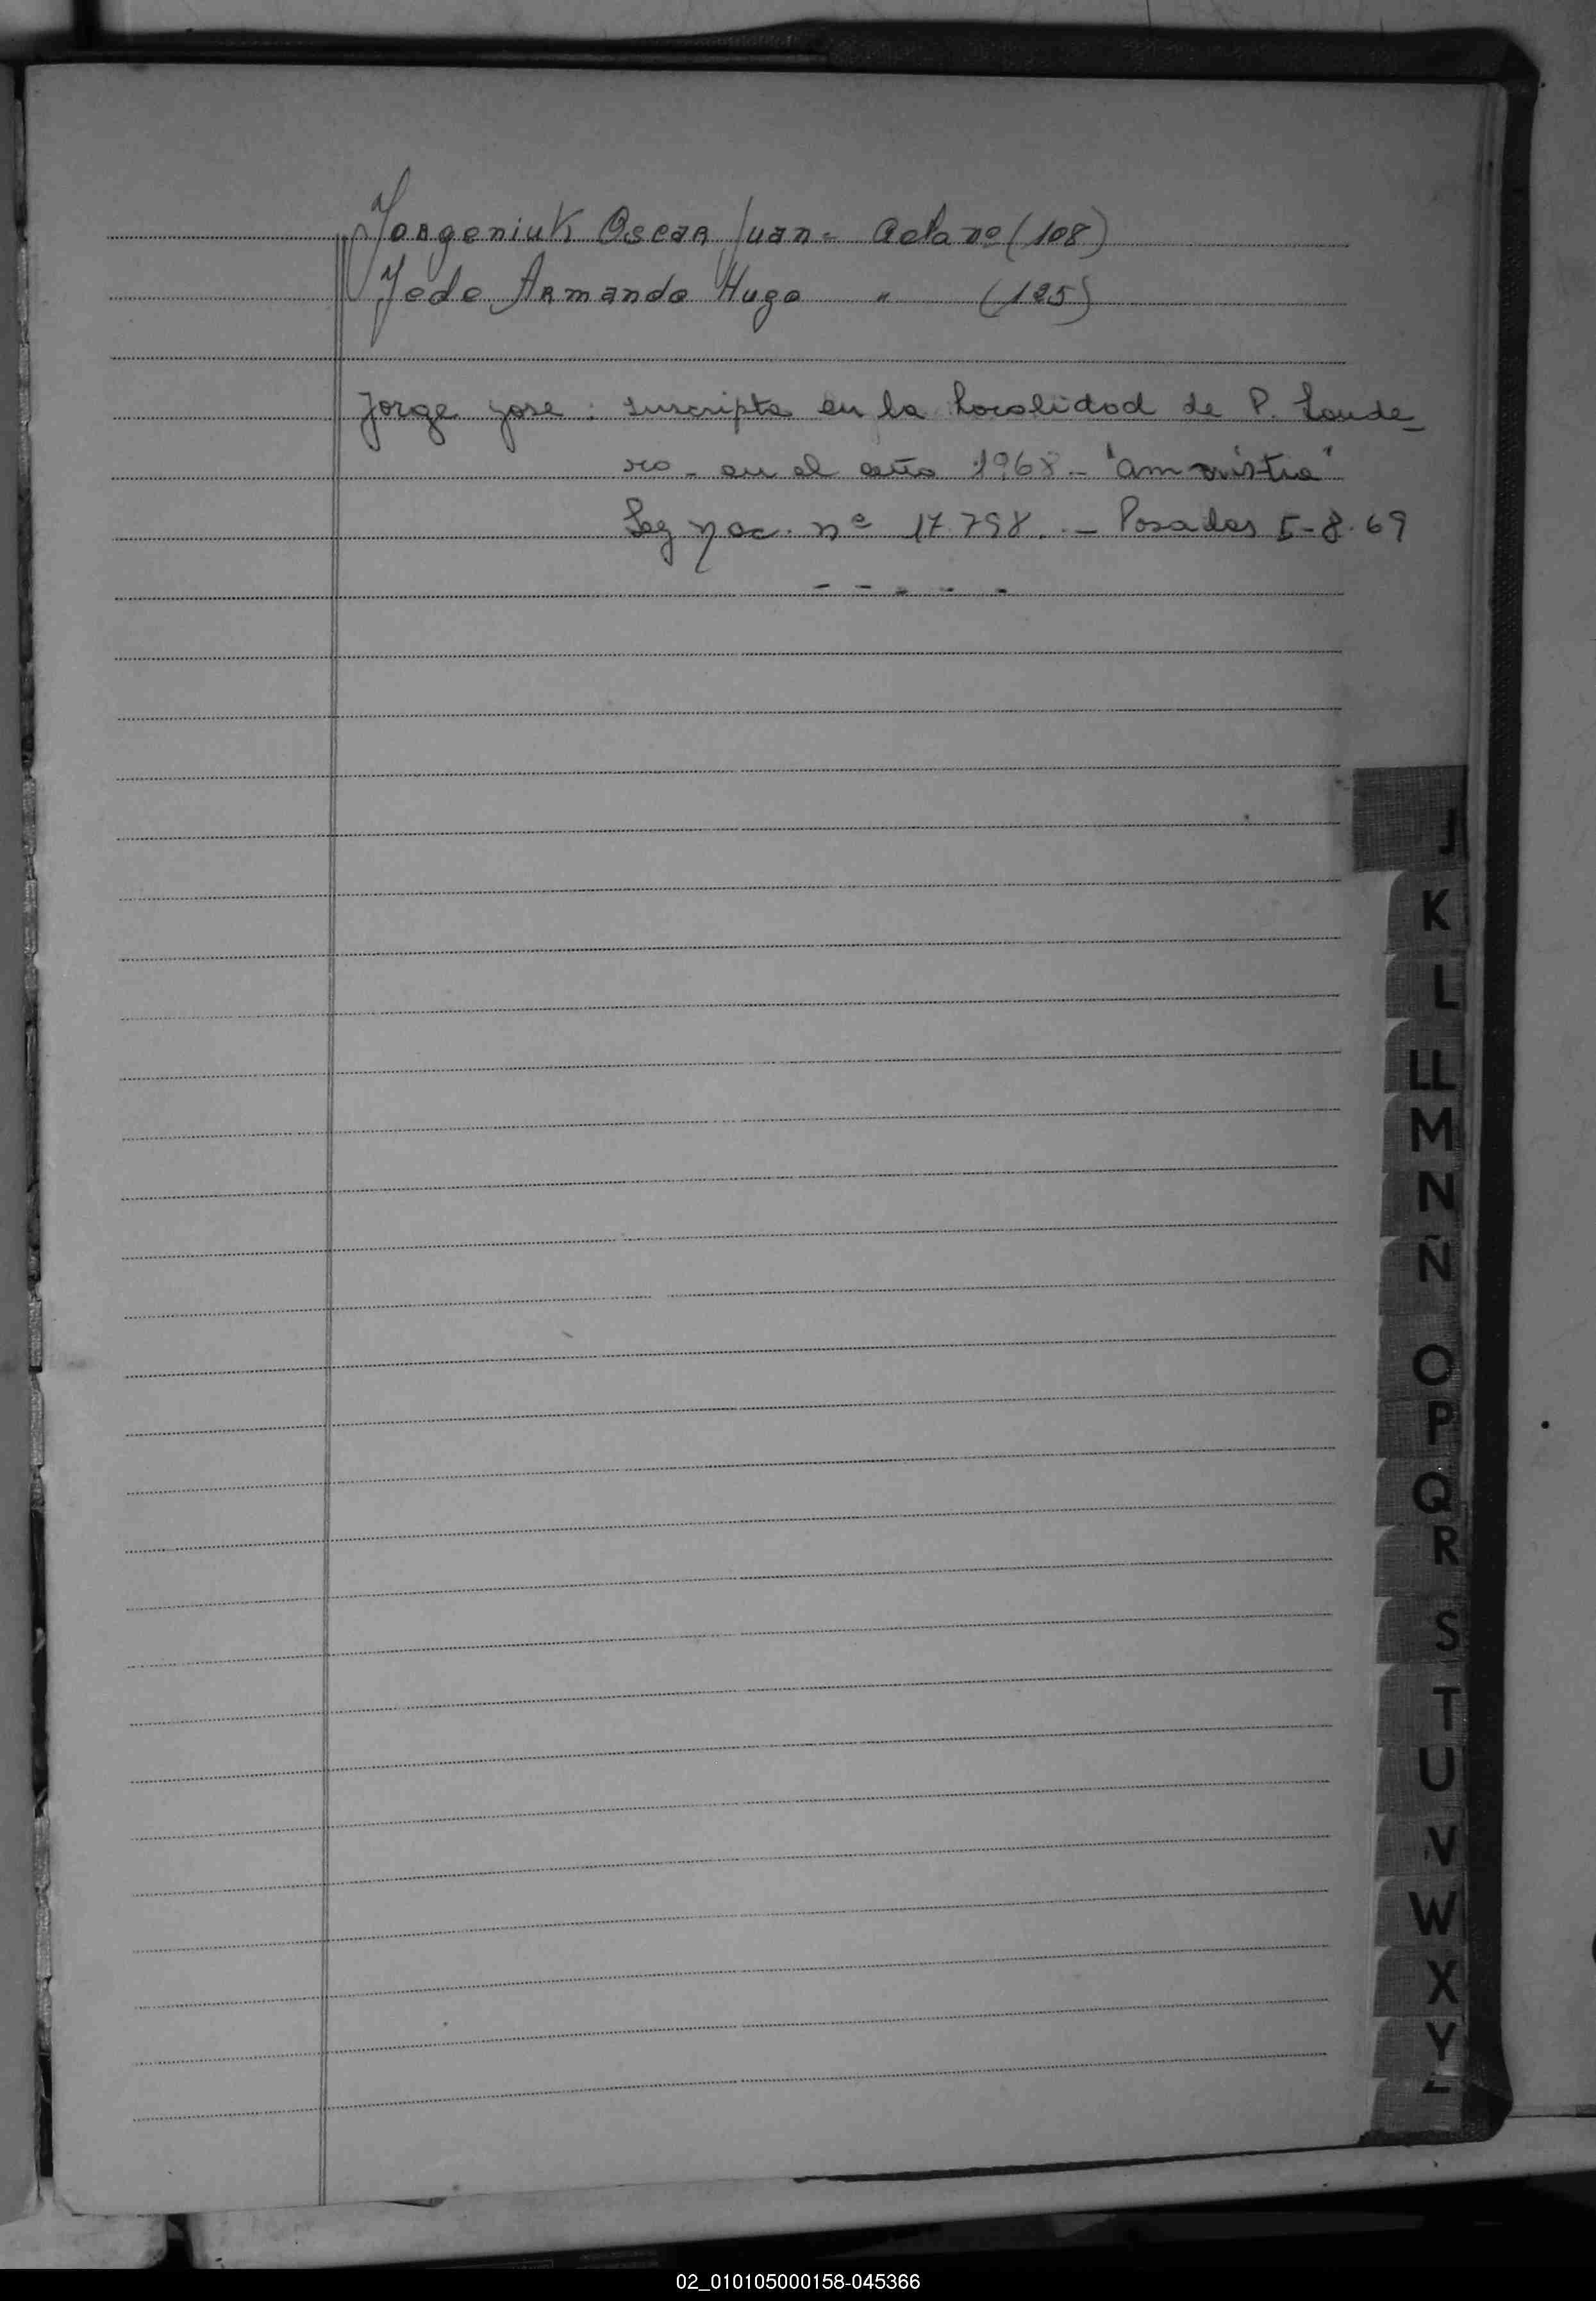 Jorgeniuk Oscar Juan= Acta nº (108)
Jede Armando Hugo " (125)
Jorge Jose: Inscripta en la Localidad de P. Lande_
ro - en el año 1968 - "amnistia"
Ley nac. nº 17.798. - Posadas 5-8-69
J
K
L
LL
M
N
Ñ
O
P
Q
R
S
T
U
V
W
X
Y
02_010105000158-045366